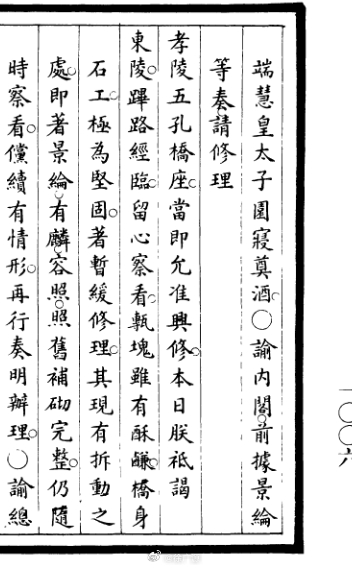 一〇〇六
端慧皇太子園寢奠酒。〇諭內閣。前據景綸
等奏請修理
孝陵五孔橋座。當即允准興修。本日朕祗謁
東陵。蹕路經臨。留心察看。甎塊雖有酥鹻。橋身
石工。極為堅固。著暫緩修理。其現有拆動之
處。即著景綸、有麟、容照、照舊補砌完整。仍隨
時察看。儻續有情形。再行奏明辦理。〇諭總